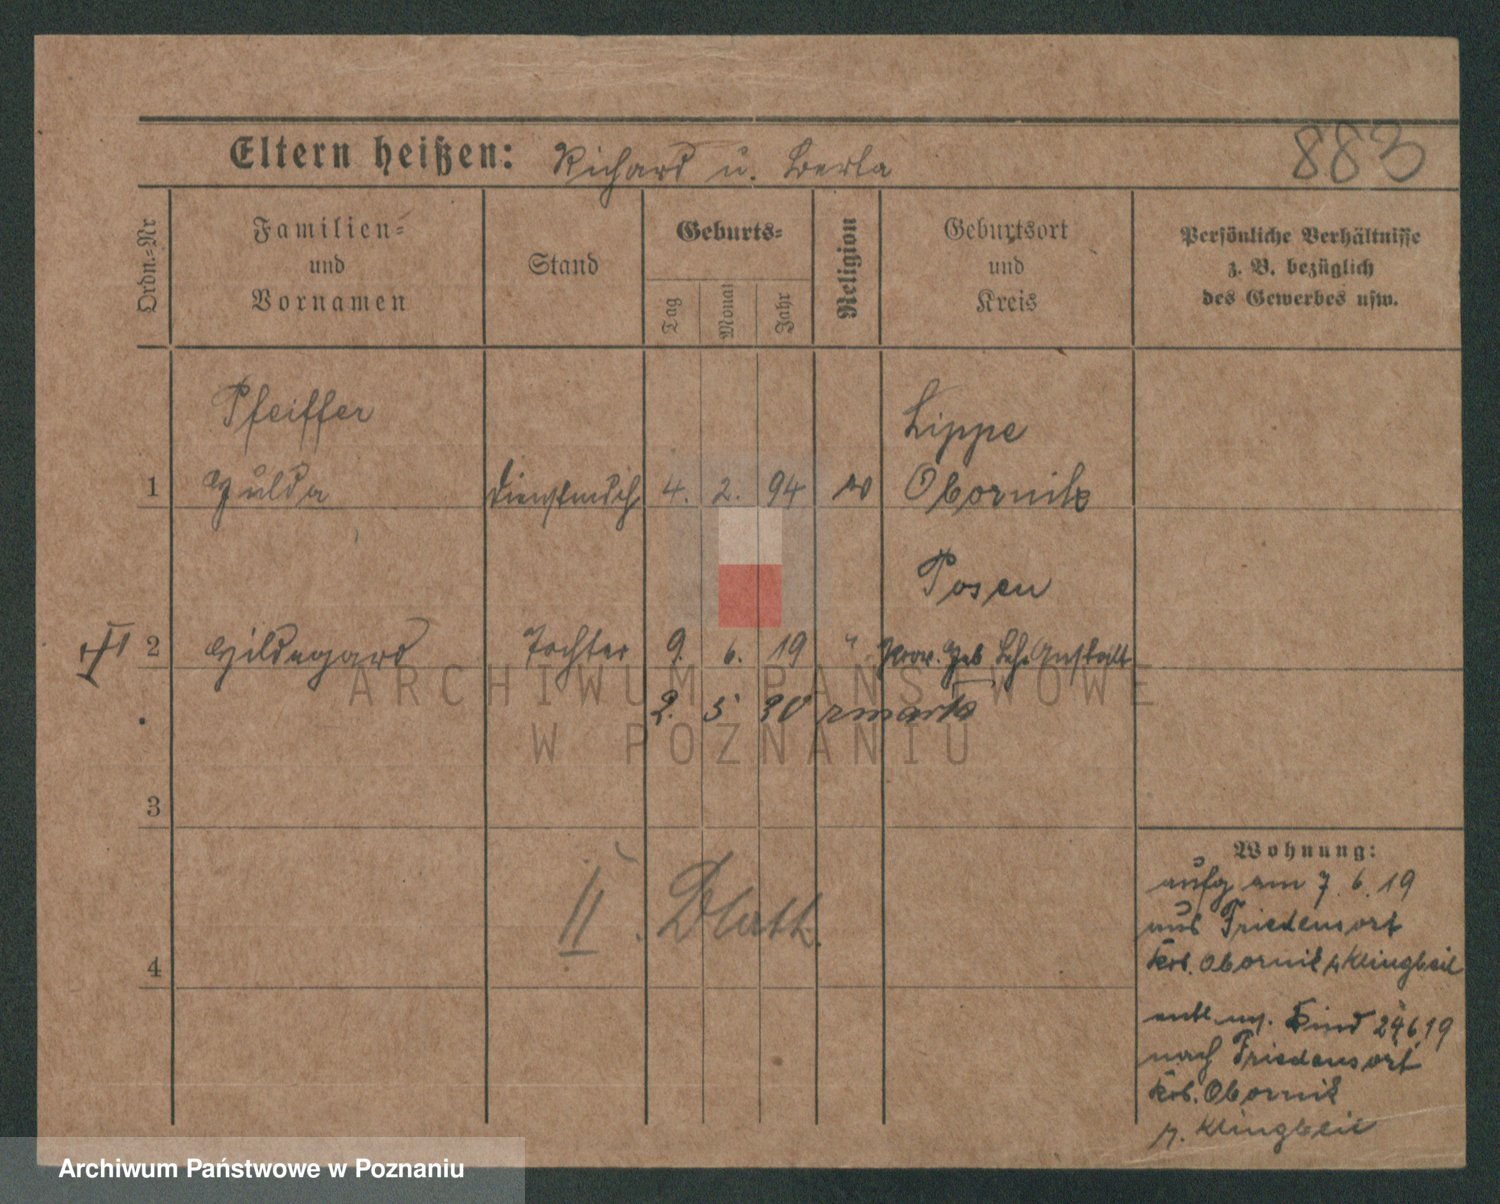 Eltern heißen: Richard u. Berta
883
Ordn.-Nr
Familien-
und
Vornamen
Stand
Geburts-
Tag
Monat
Jahr
Religion
Geburtsort
und
Kreis
Persönliche Verhältnisse
z. B. bezüglich
des Gewerbes usw.
Pfeiffer
Lippe
1 Hulda Dienstmdch 4. 2. 94 ev Obornik
Posen
2 Hildegard Tochter 9. 6. 19 " Prov. Heb Lehr Anstalt
2. 5 20
3
II. Blatt.
4
Wohnung:
aufg am 7. 6. 19
aus Friedensort
Krs. Obornik b Klingbeil
entl m. Kind 24 6 19
nach Friedensort
Krs. Obornik
b. Klingbeil
ARCHIWUM PAŃSTWOWE
W POZNANIU
Archiwum Państwowe w Poznaniu